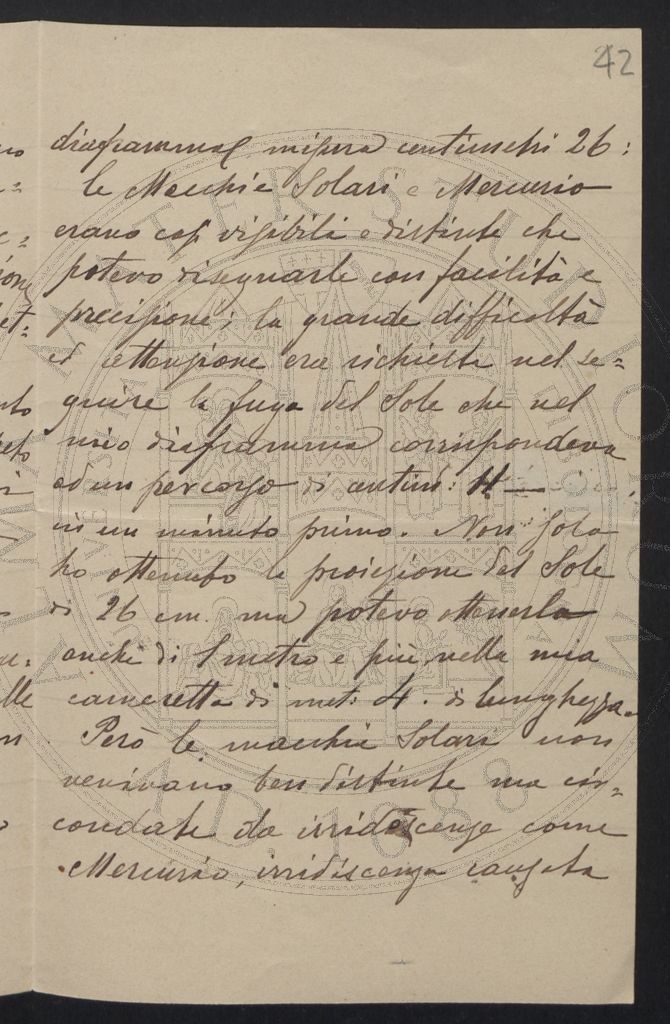 42
diaframma misura centimetri 26:
le Macchie Solari e Mercurio
erano così visibili e distinte che
potevo disegnarle con facilità e
precisione; la grande difficoltà
ed attenzione era richiesta nel se=
guire la fuga del Sole che nel
mio diaframma corrispondeva
ad un percorso di centim:
in un minuto primo. Non solo
ho ottenuto la proiezione del Sole
di 26 cm. ma potevo ottenerla
anche di 1 metro e più, nella mia
cameretta di met: 4. di lunghezza.
Però le macchie Solari non
venivano ben distinte ma cir=
condate da irridescenze come
Mercurio, irridiscenza causata